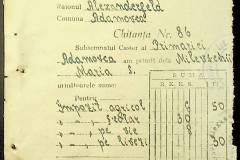 Raionul Alexanderfeld
Comuna Adamovca
Chitanța Nr. 86
Subsemnatul Casier al Primăriei
Adamovca am primit dela Milevschi
Maria S.
următoarele sume:
Pentru
SUMA
Impozit agricol 6 50
" școlar 3
" pe vie
" pe livezi 50